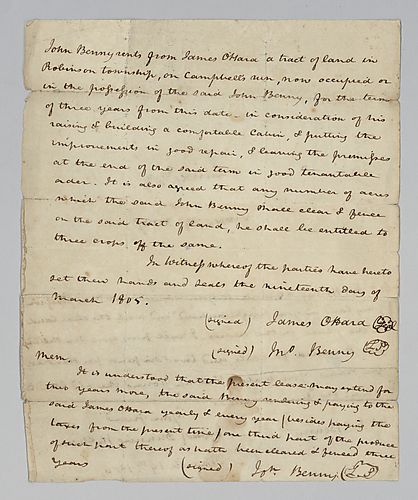 John Benny rents from James OHara a tract of land in
Robinson township, on Campbells run, now occupied or
in the possession of the said John Benny, for the term
of three years from this date in consideration of his
raising & building a comfortable Cabin, & putting the
improvements in good repair, & leaving the premises
at the end of the said term in good tenantable
order. It is also agreed that any number of acres
which the said John Benny shall clear & fence
on the said tract of land, he shall be entitled to
three crops off the same.
In Witness whereof the parties have hereto
set their hands and seals the nineteenth day of
March 1805.
(signed) James OHara
(signed) Jno. Benny
Mem.
It is understood that the present lease may extend for
two years more, the said Benny rendering & paying to the
said James OHara yearly & every year (besides paying the
taxes from the present time) one third part of the produce
of such part thereof as hath been cleared & fenced three
years (signed) Benny